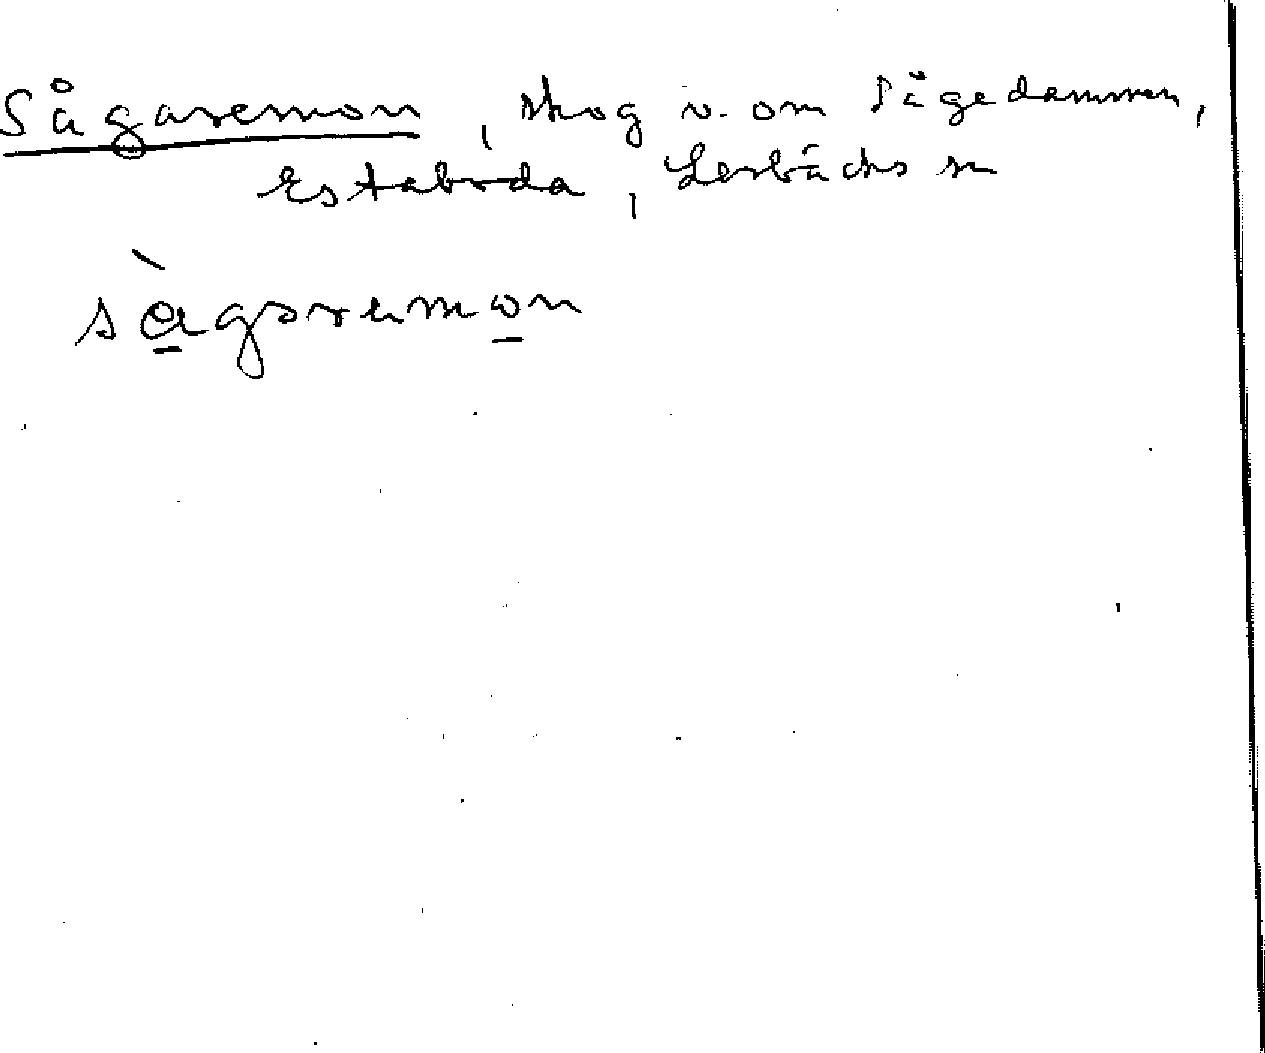 Sågaremon, skog v. om Sågedammen,
Estabråda, Lerbäcks sn
sàgaremon